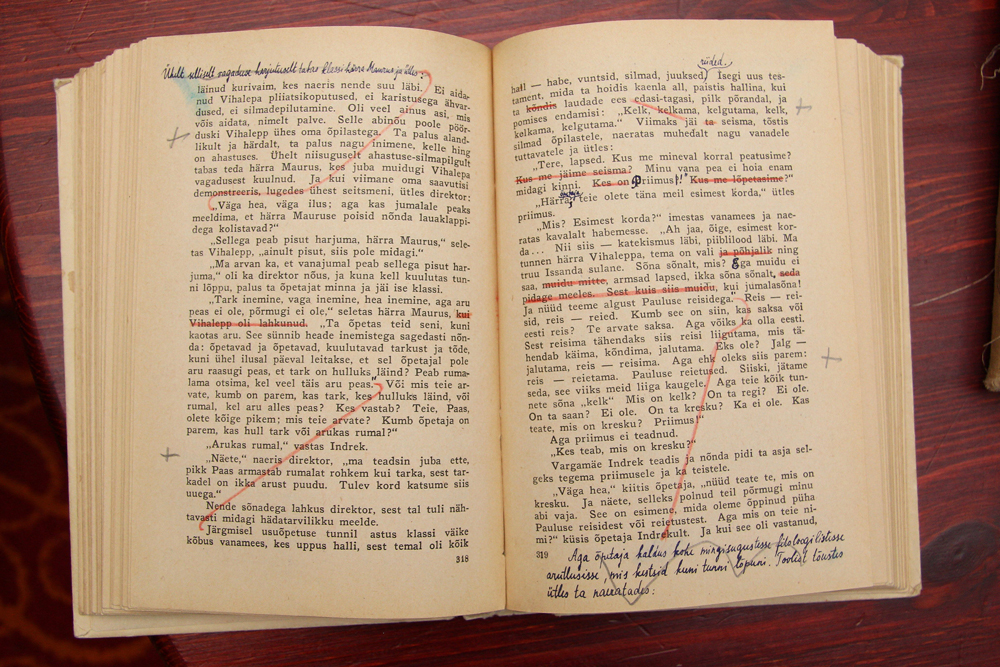 Ühelt selliselt vagaduse harjutuselt tabas klassi härra Maurus ja ütles:
läinud kurivaim, kes naeris nende suu läbi. Ei aida-
nud Vihalepa pliiatsikoputused, ei karistusega ähvar-
dused, ei silmadepilutamine. Oli veel ainus asi, mis
võis aidata, nimelt palve. Selle abinõu poole pöör-
duski Vihalepp ühes oma õpilastega. Ta palus aland-
likult ja härdalt, ta palus nagu inimene, kelle hing
on ahastuses. Ühelt niisuguselt ahastuse-silmapilgult
tabas teda härra Maurus, kes juba muidugi Vihalepa
vagadusest kuulnud. Ja kui viimane oma saavutisi
demonstreeris, lugedes ühest seitsmeni, ütles direktor:
„Väga hea, väga ilus; aga kas jumalale peaks
meeldima, et härra Mauruse poisid nõnda lauaklappi-
dega kolistavad?“
„Sellega peab pisut harjuma, härra Maurus,“ sele-
tas Vihalepp, „ainult pisut, siis pole midagi.“
„Ma arvan ka, et vanajumal peab sellega pisut har-
juma,“ oli ka direktor nõus, ja kuna kell kuulutas tun-
ni lõppu, palus ta õpetajat minna ja jäi ise klassi.
„Tark inemine, vaga inemine, hea inemine, aga aru
peas ei ole, põrmugi ei ole,“ seletas härra Maurus, kui
Vihalepp oli lahkunud. „Ta õpetas teid seni, kuni
kaotas aru. See sünnib heade inemistega sagedasti nõn-
da: õpetavad ja õpetavad, kuulutavad tarkust ja tõde,
kuni ühel ilusal päeval leitakse, et sel õpetajal pole
aru raasugi peas, et tark on hulluks läind? Peab ruma-
lama otsima, kel veel täis aru peas. Või mis teie ar-
vate, kumb on parem, kas tark, kes hulluks läind, või
rumal, kel aru alles peas? Kes vastab? Teie, Paas,
olete kõige pikem; mis teie arvate? Kumb õpetaja on
parem, kas hull tark või arukas rumal?“
„Arukas rumal,“ vastas Indrek.
„Näete,“ naeris direktor, „ma teadsin juba ette,
pikk Paas armastab rumalat rohkem kui tarka, sest tar-
kadel on ikka arust puudu. Tulev kord katsume siis
uuega.“
Nende sõnadega lahkus direktor, sest tal tuli näh-
tavasti midagi hädatarvilikku meelde.
Järgmisel usuõpetuse tunnil astus klassi väike
kõbus vanamees, kes uppus halli, sest temal oli kõik
318
riided.
hall — habe, vuntsid, silmad, juuksed, Isegi uus tes-
tament, mida ta hoidis kaenla all, paistis hallina, kui
ta kõndis laudade ees edasi-tagasi, pilk põrandal, ja
pomises endamisi: „Kelk, kelkama, kelgutama, kelk,
kelkama, kelgutama.“ Viimaks jäi ta seisma, tõstis
silmad õpilastele, naeratas muhedalt nagu vanadele
tuttavatele ja ütles:
„Tere, lapsed. Kus me mineval korral peatusime?
Kus me jäime seisma? Minu vana pea ei hoia enam
midagi kinni. Kes on Priimus!“ Kus me lõpetasime?“
„Härra, teie olete täna meil esimest korda,“ ütles
priimus.
„Mis? Esimest korda?“ imestas vanamees ja nae-
ratas kavalalt habemesse. „Ah jaa, õige, esimest kor-
da... Nii siis — katekismus läbi, piiblilood läbi. Ma
tunnen härra Vihaleppa, tema on vali ja põhjalik ning
truu Issanda sulane. Sõna sõnalt, mis? Ega muidu ei
saa, muidu mitte, armsad lapsed, ikka sõna sõnalt, seda
pidage meeles. Sest kuis siis muidu, kui jumalasõna!
Ja nüüd teeme algust Pauluse reisidega.“ Reis — rei-
sid, reis — reied. Kumb see on siin, kas saksa või
eesti reis? Te arvate saksa. Aga võiks ka olla eesti.
Sest reisima tähendaks siis reisi liigutama, mis tä-
hendab käima, kõndima, jalutama. Eks ole? Jalg —
jalutama, reis — reisima. Aga ehk oleks siis parem:
reis — reietama. Pauluse reietused. Siiski, jätame
seda, see viiks meid liiga kaugele. Aga teie kõik tun-
nete sõna „kelk“ Mis on kelk? On ta regi? Ei ole.
On ta saan? Ei ole. On ta kresku? Ka ei ole. Kas
teate, mis on kresku? Priimus!“
Aga priimus ei teadnud.
„Kes teab, mis on kresku?“
Vargamäe Indrek teadis ja nõnda pidi ta asja sel-
geks tegema priimusele ja ka teistele.
„Väga hea,“ kiitis õpetaja, „nüüd teate te, mis on
kresku. Ja näete, selleks polnud teil põrmugi minu
abi vaja. See on esimene, mida oleme õppinud püha
Pauluse reisidest või reietustest. Aga mis on teie ni-
mi?“ küsis õpetaja Indrekult. Ja kui see oli vastanud,
319
Aga õpetaja kaldus kohe mingisugustesse filoloogilistesse
arutlusisse, mis kestsid kuni tunni lõpuni. Toolilt tõustes
ütles ta naeratades: